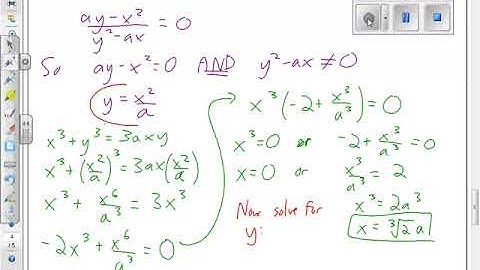 (ay-x²)/(y²-ax) = 0
So ay-x²=0 AND y²-ax≠0
y = x²/a
x³+y³=3axy
x³+(x²/a)³=3ax(x²/a)
x³+ x⁶/a³ = 3x³
-2x³+ x⁶/a³ = 0
x³(-2+ x³/a³)=0
x³=0 or -2+ x³/a³ =0
x=0 or x³/a³ = 2
x³=2a³
x = ∛2 a
Now solve for
y: